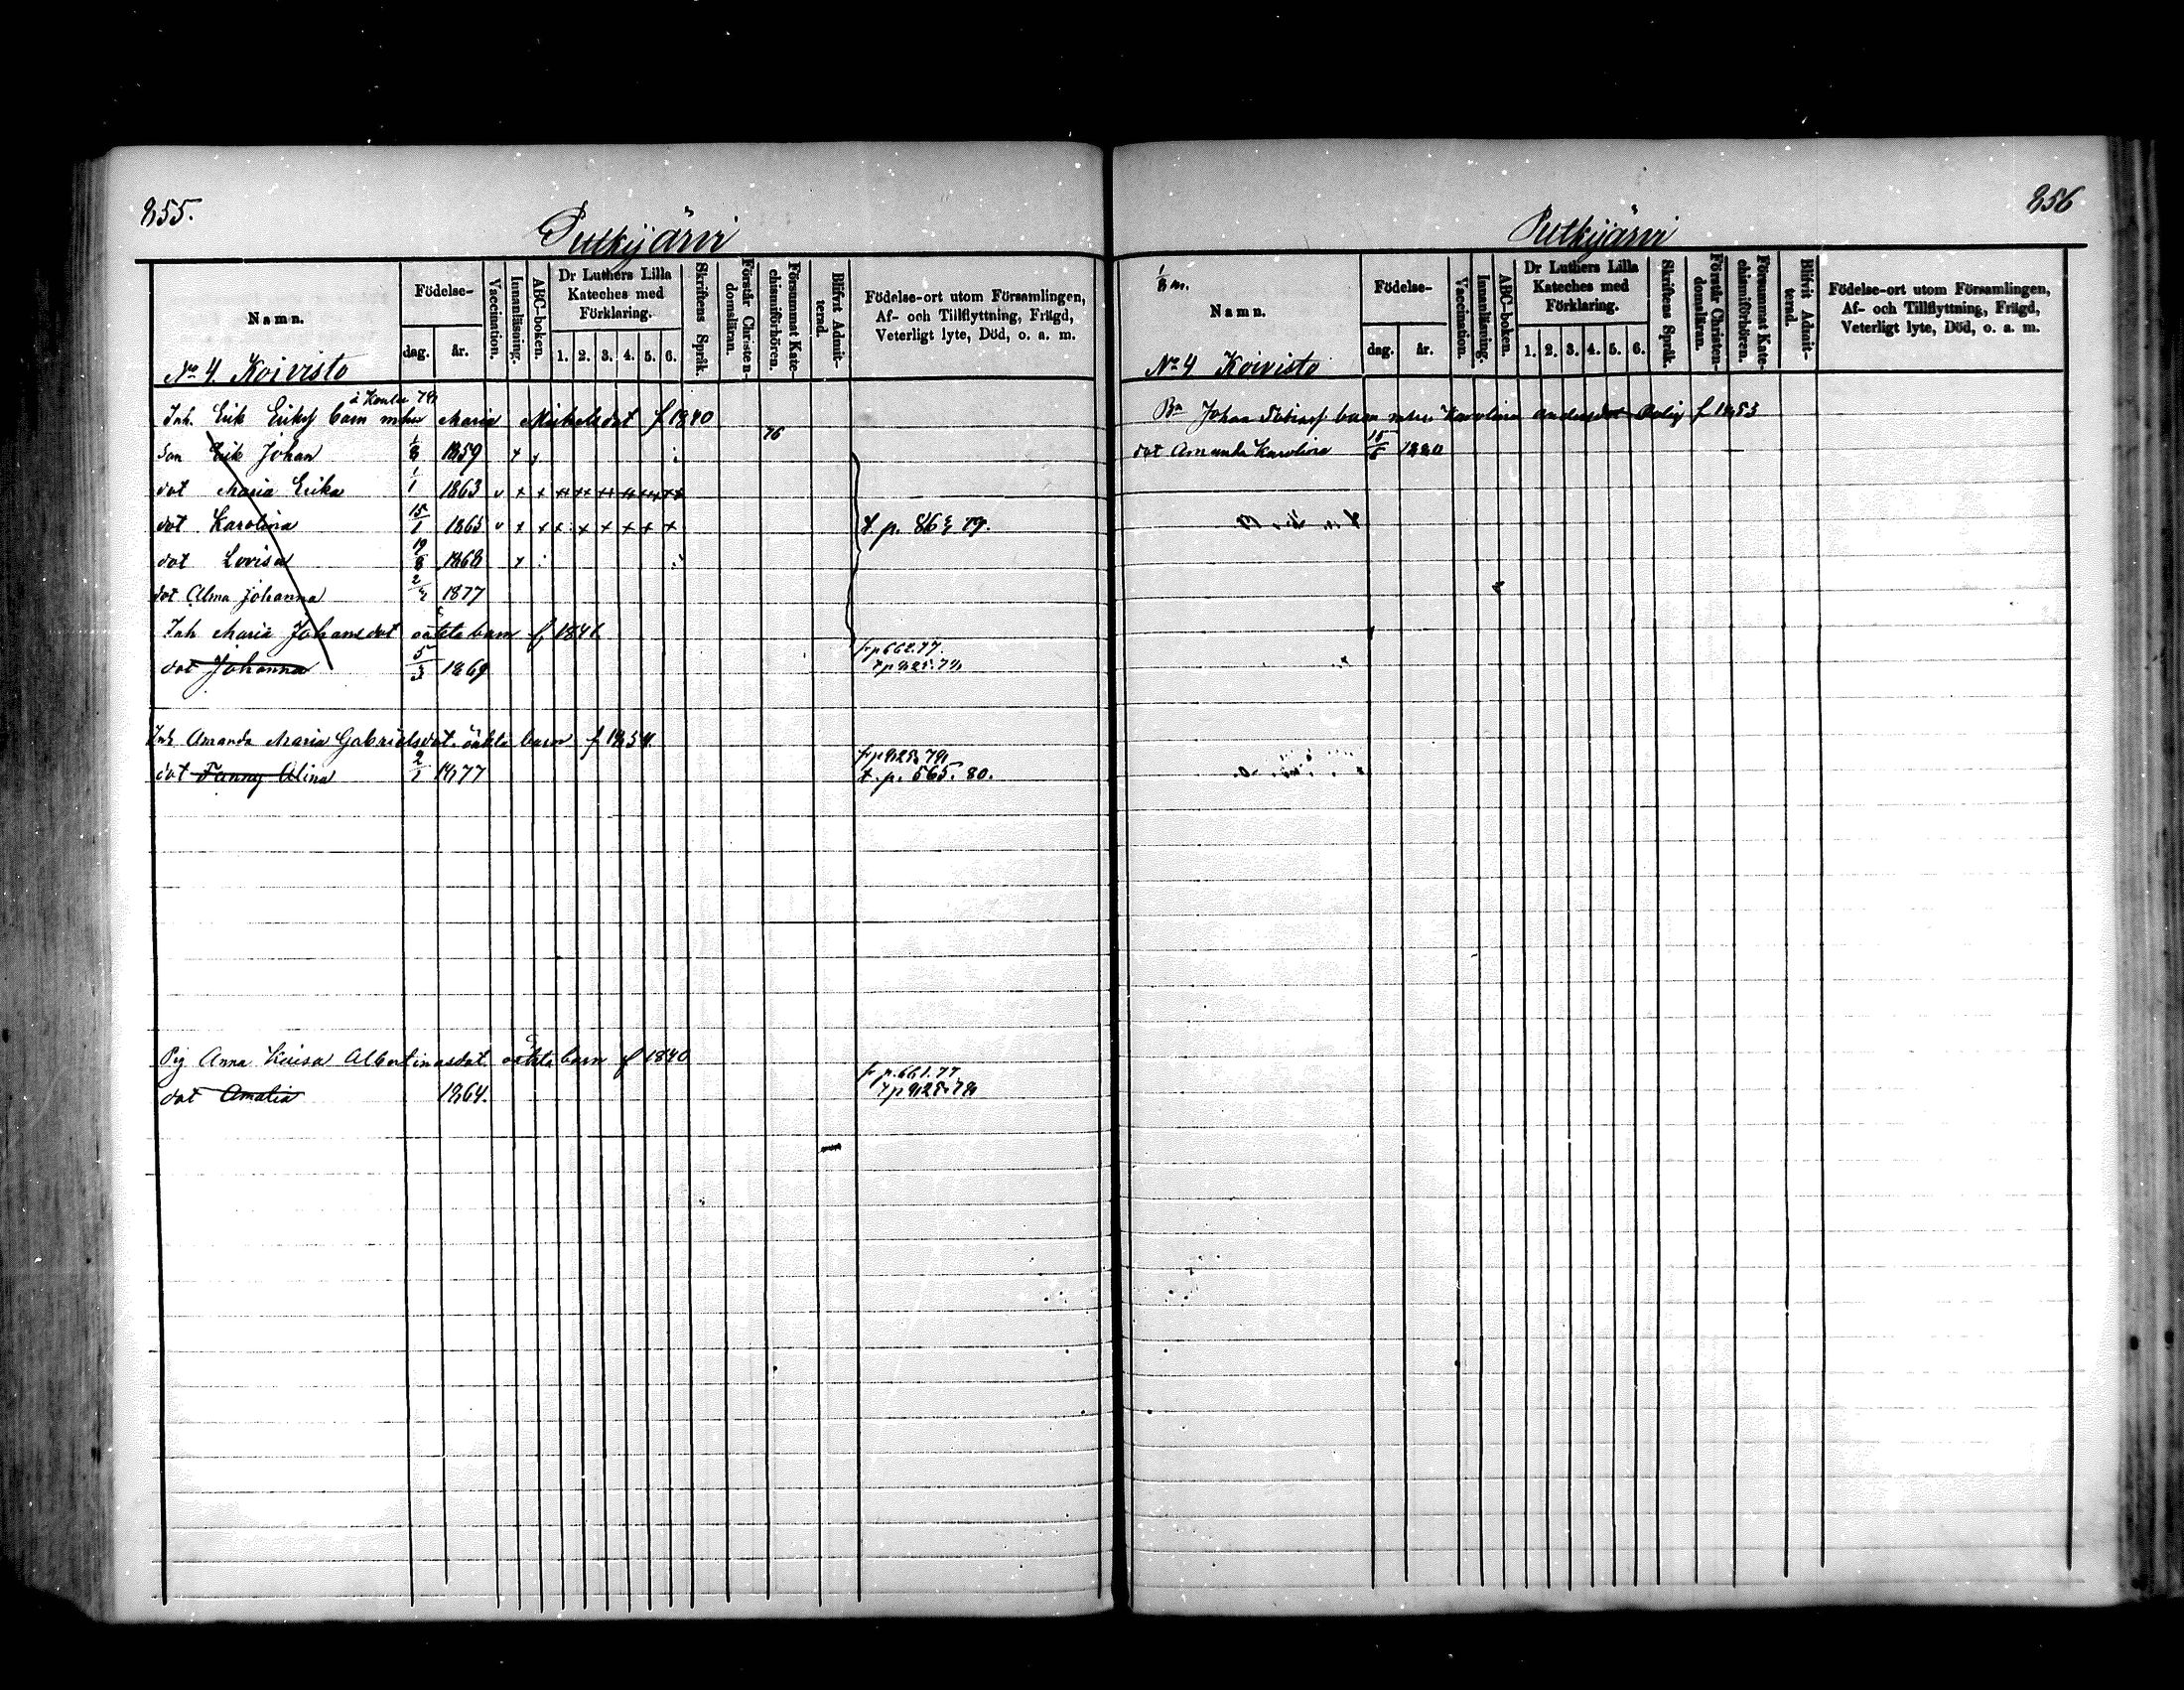 855.
Putkijärvi
Namn.
Födelse-
dag.
år.
Vaccination.
Innanläsning.
ABC-boken.
Dr Luthers Lilla
Kateches med
Förklaring.
1. 2. 3. 4. 5. 6.
Skriftens Språk.
Förstår Christen-
domsläran.
Försummat Kate-
chismiförhören.
Blifvit Admit-
terad.
Födelse-ort utom Församlingen,
Af- och Tillflyttning, Frägd,
Veterligt lyte, Död, o. a. m.
No 4. Koivisto
Inh. Erik Eriks barn m hu Maria Michelsdot f 1840
76
Son Erik Johan 1/8 1859 x x
dot Maria Erika 1/1 1863 v + + ++ ++ ++ ++ ++ ++
dot Karolina 15/1 1865 v + + + + + + + + t. p. 865 79.
dot Lovisa 19/8 1868
dot Alma Johanna 1877
Inh Maria Johansdot oäkta barn f 1841
fr p 662. 77.
dot Johanna 5/3 1869
Inh Amanda Maria Gabrielsdot. oäkta barn f 1854
dot Fanny Alina 2/1 1877 t. p. 565. 80.
Pig Anna Lovisa Albertinasdot oäkta barn f 1840
fr p. 661. 77
dot Amalia 1864.
856
Putkijärvi
1/8 m.
Namn.
Födelse-
dag.
år.
Vaccination.
Innanläsning.
ABC-boken.
Dr Luthers Lilla
Kateches med
Förklaring.
1. 2. 3. 4. 5. 6.
Skriftens Språk.
Förstår Christen-
domsläran.
Försummat Kate-
chismiförhören.
Blifvit Admit-
terad.
Födelse-ort utom Församlingen,
Af- och Tillflyttning, Frägd,
Veterligt lyte, Död, o. a. m.
No 4 Koivisto
Bn Johan barn m hu Karolina Andersdot f 1853
dot Amanda Karolina 15/6 1880